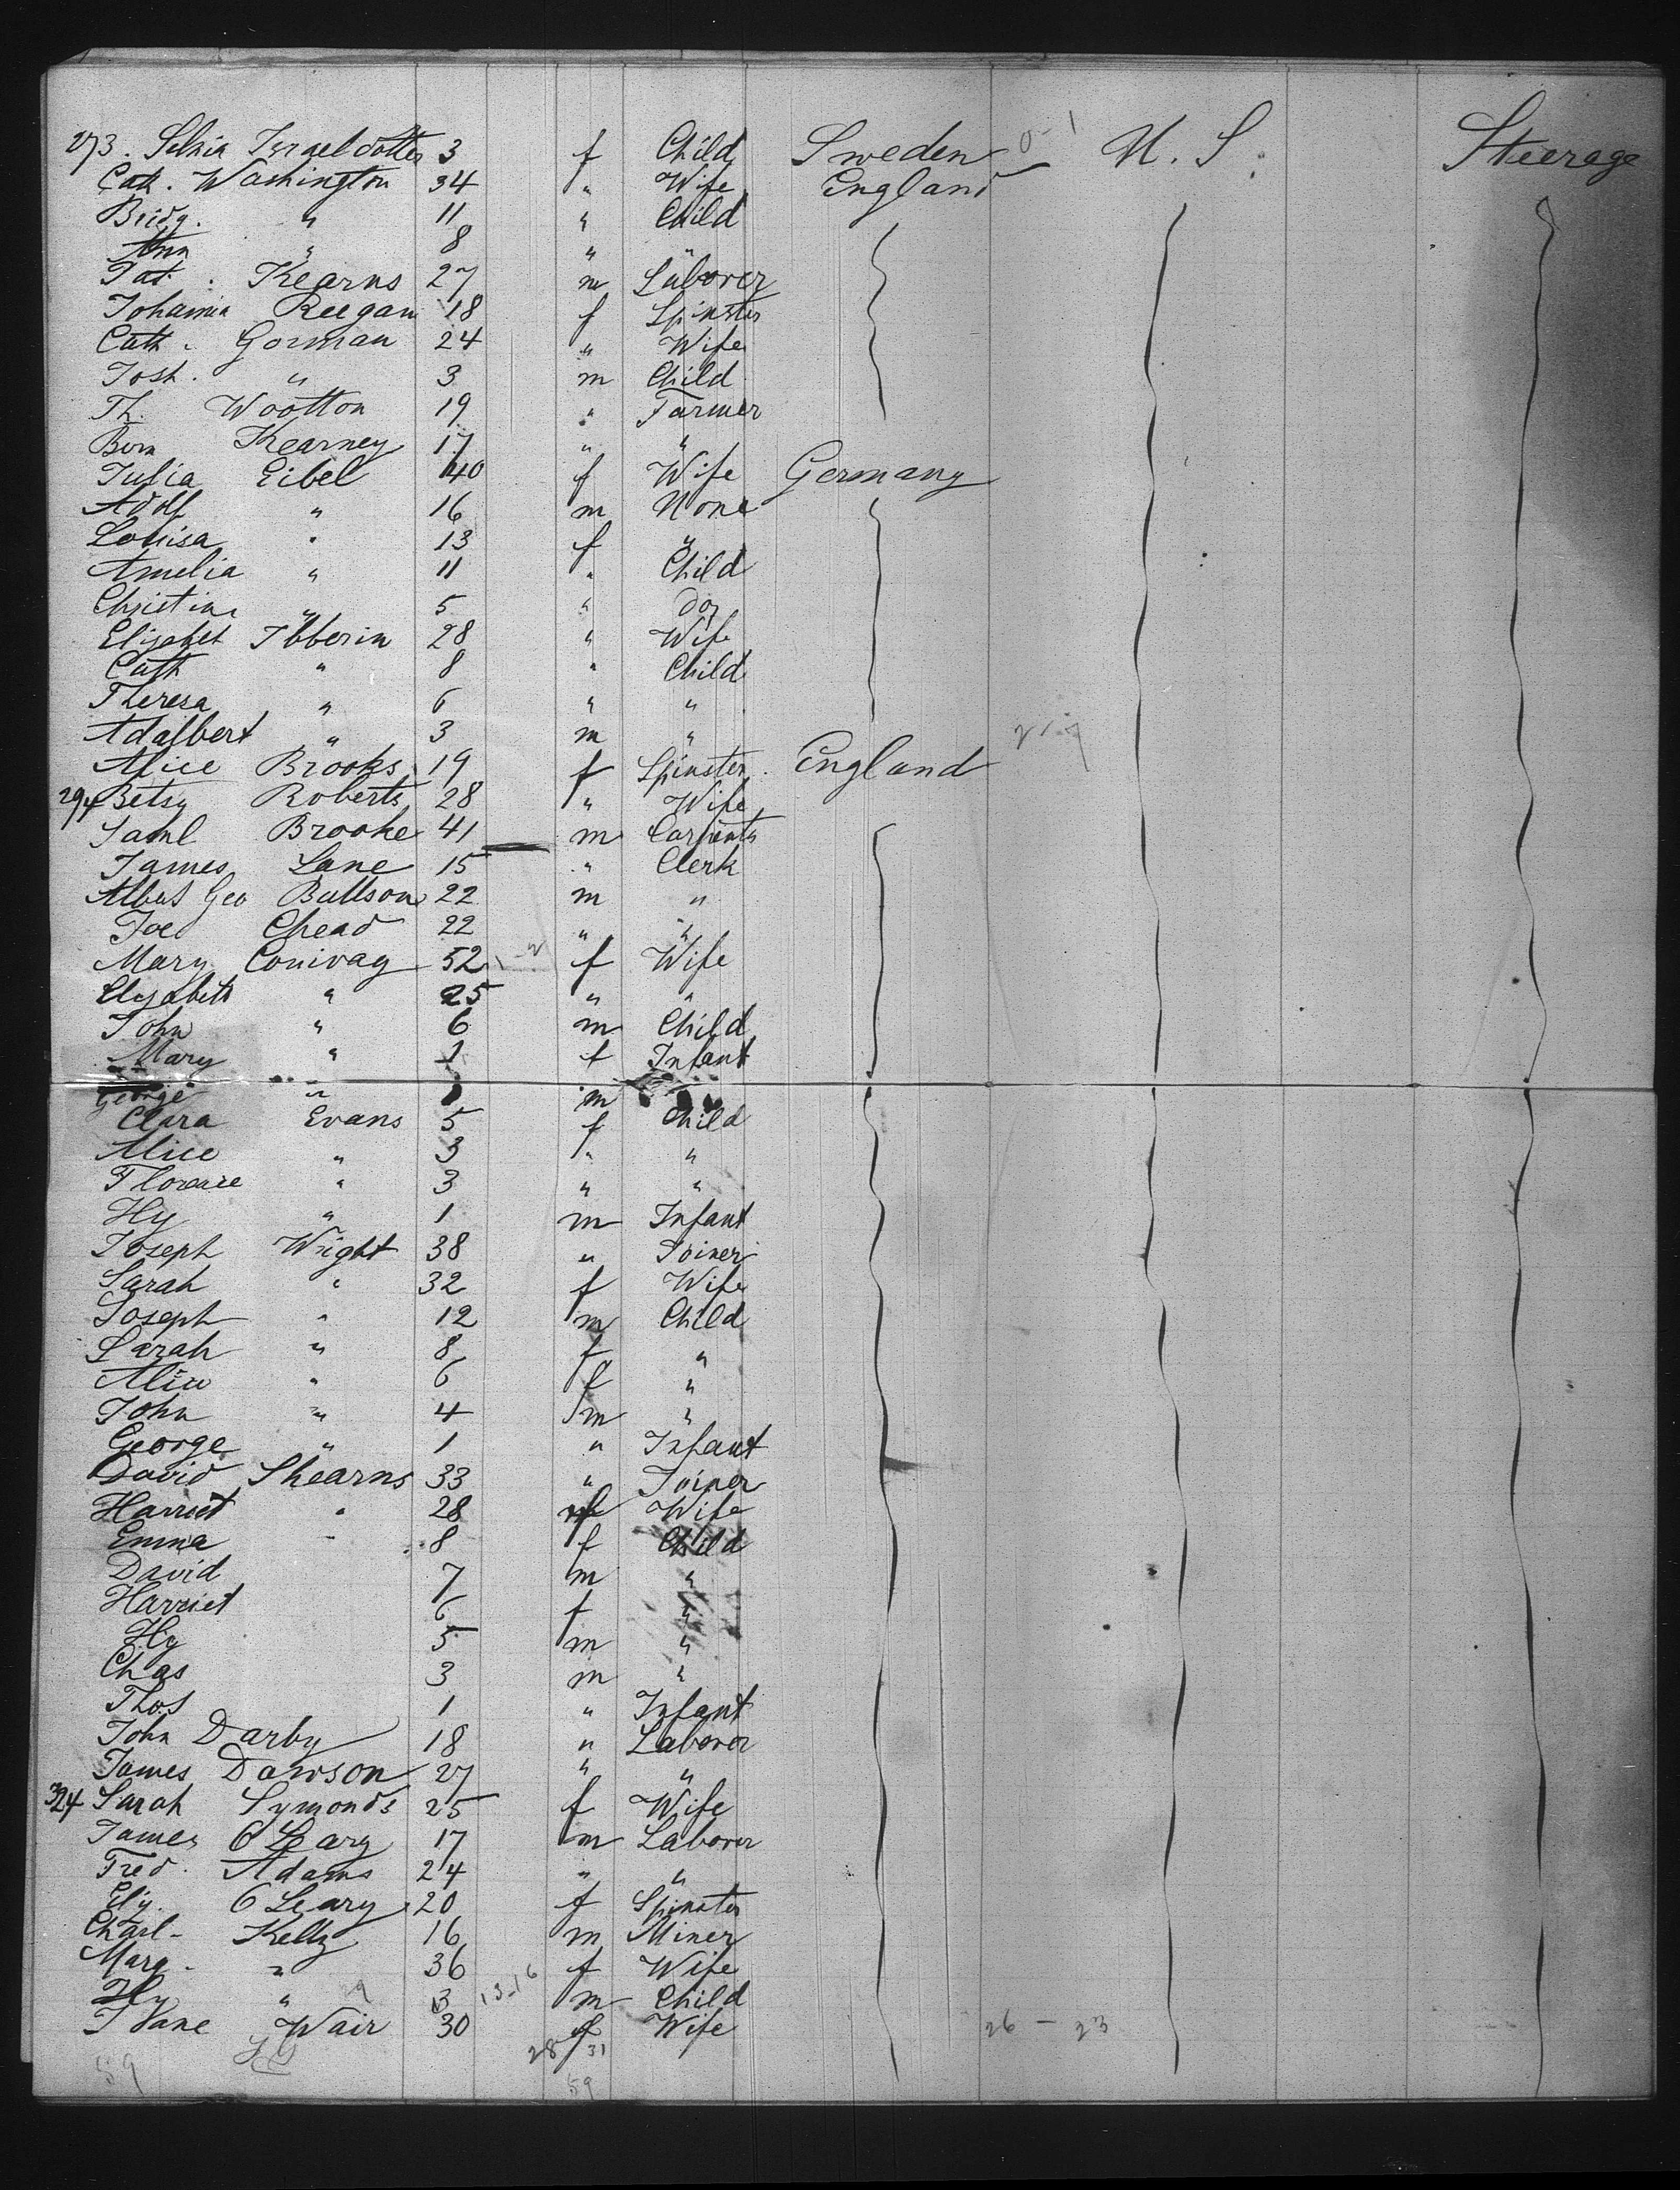 273. Selnia Israeldotter 3 f Child Sweden U.S. Steerage
Cath. Washington 34 " Wife England
Bridg. " 11 " Child
Ann " 8 " "
Pat. Kearns 27 m Laborer
Johanna Reegan 18 f Spinster
Cath. Gorman 24 " Wife
Josh. " 3 m Child
Th. Wootton 19 " Farmer
Bern Kearney 17 " "
Julia Eibel 40 f Wife Germany
Adolf " 16 m None
Louisa " 13 f "
Amelia " 11 " Child
Christina " 5 " do
Elisabet Ibberin 28 " Wife
Cath " 8 " Child
Theresa " 6 " "
Adalbert " 3 m "
Alice Brooks 19 f Spinster England
294 Betsy Roberts 28 " Wife
Saml Brooke 41 m Carpenter
James Lane 15 " Clerk
Albert Geo Bullson 22 m "
Joe Chead 22 " "
Mary Conway 52 f Wife
Elyzabeth " 25 " "
John " 6 m Child
Mary " 1 f Infant
George " m
Clara Evans 5 f Child
Alice " 3 " "
Florence " 3 " "
Hy " 1 m Infant
Joseph Wright 38 " Joiner
Sarah " 32 f Wife
Joseph " 12 m Child
Sarah " 8 f "
Alice " 6 f "
John " 4 m "
George " 1 " Infant
David Shearns 33 " Joiner
Harriet " 28 f Wife
Emma " 8 f Child
David 7 m "
Harriet 6 f "
Hy 5 m "
Chas 3 m "
Thos 1 " Infant
John Darby 18 " Laborer
James Dawson 27 " "
324 Sarah Symonds 25 f Wife
James O'Leary 17 m Laborer
Fred. Adams 24 " "
Eliz. O Leary 20 f Spinster
Charl- Kelly 16 m Miner
Marg- " 36 f Wife
Hy " 3 13-16 m Child
Jane Wair 30 f Wife 26 - 23
28 31
59 59